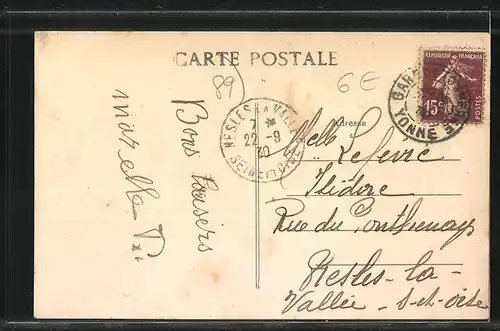 CARTE POSTALE
89
6E
RÉPUBLIQUE FRANÇAISE
15c
POSTES
YONNE
NESLES LA VALLÉE
7 *
22-9
30
SEINE ET OISE
Adresse
Bons Baisers
Melle Lefevre
Isidore
Rue du
Nesles-la-
Vallée S-et-Oise